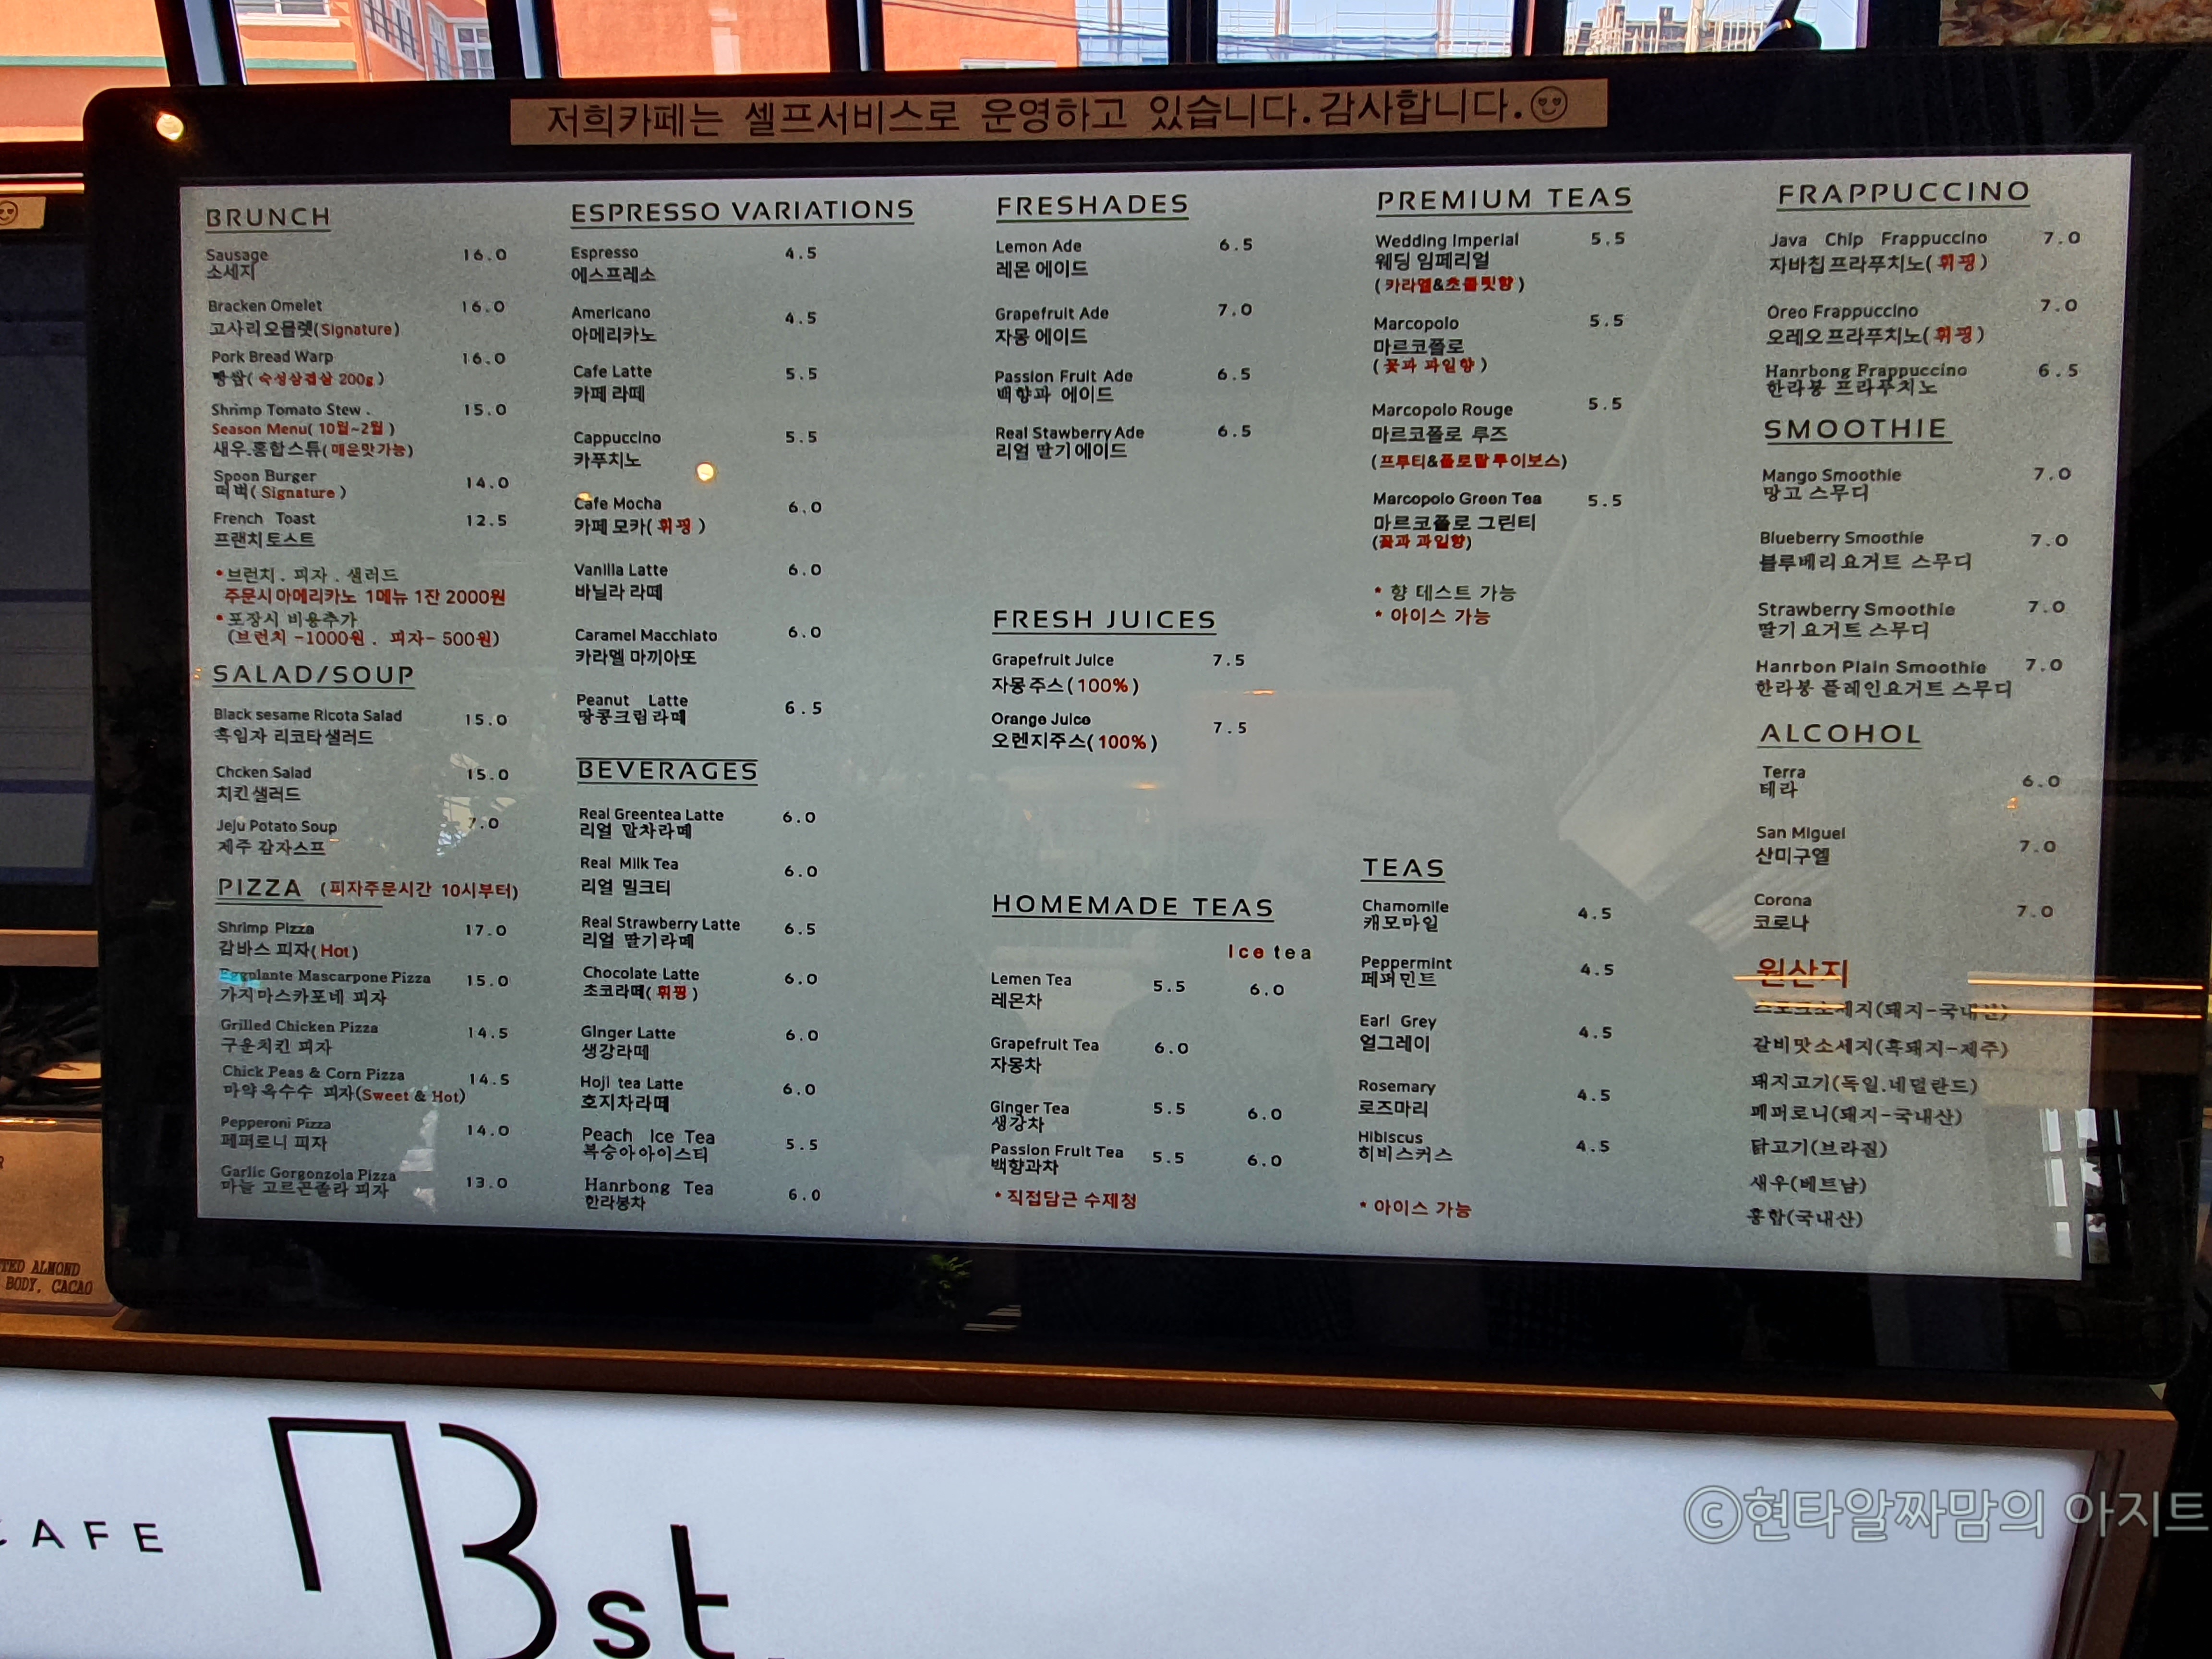 저희카페는 셀프서비스로 운영하고 있습니다.감사합니다.
BRUNCH
Sausage 16.0
소세지
Bracken Omelet 16.0
고사리오믈렛(Signature)
Pork Bread Warp 16.0
빵쌈(숙성삼겹살 200g)
Shrimp Tomato Stew . 15.0
Season Menu( 10월~2월 )
새우.홍합스튜(매운맛가능)
Spoon Burger 14.0
떠벅( Signature )
French Toast 12.5
프랜치토스트
*브런치 . 피자 . 샐러드
주문시 아메리카노 1메뉴 1잔 2000원
*포장시 비용추가
(브런치 -1000원 . 피자- 500원)
SALAD/SOUP
Black sesame Ricota Salad 15.0
흑임자 리코타샐러드
Chcken Salad 15.0
치킨샐러드
Jeju Potato Soup 7.0
제주 감자스프
PIZZA (피자주문시간 10시부터)
Shrimp Pizza 17.0
감바스 피자(Hot)
Eggplante Mascarpone Pizza 15.0
가지마스카포네 피자
Grilled Chicken Pizza 14.5
구운치킨 피자
Chick Peas & Corn Pizza 14.5
마약옥수수 피자(Sweet & Hot)
Pepperoni Pizza 14.0
페퍼로니 피자
Garlic Gorgonzola Pizza 13.0
마늘 고르곤졸라 피자
ESPRESSO VARIATIONS
Espresso 4.5
에스프레소
Americano 4.5
아메리카노
Cafe Latte 5.5
카페 라떼
Cappuccino 5.5
카푸치노
Cafe Mocha 6.0
카페 모카( 휘핑 )
Vanilla Latte 6.0
바닐라 라떼
Caramel Macchiato 6.0
카라멜 마끼아또
Peanut Latte 6.5
땅콩크림라떼
BEVERAGES
Real Greentea Latte 6.0
리얼 말차라떼
Real Milk Tea 6.0
리얼 밀크티
Real Strawberry Latte 6.5
리얼 딸기라떼
Chocolate Latte 6.0
초코라떼( 휘핑 )
Ginger Latte 6.0
생강라떼
Hoji tea Latte 6.0
호지차라떼
Peach Ice Tea 5.5
복숭아아이스티
Hanrbong Tea 6.0
한라봉차
FRESHADES
Lemon Ade 6.5
레몬 에이드
Grapefruit Ade 7.0
자몽 에이드
Passion Fruit Ade 6.5
백향과 에이드
Real Stawberry Ade 6.5
리얼 딸기에이드
FRESH JUICES
Grapefruit Juice 7.5
자몽주스(100%)
Orange Juice 7.5
오렌지주스(100%)
HOMEMADE TEAS
Ice tea
Lemen Tea 5.5 6.0
레몬차
Grapefruit Tea 6.0
자몽차
Ginger Tea 5.5 6.0
생강차
Passion Fruit Tea 5.5 6.0
백향과차
*직접담근 수제청
PREMIUM TEAS
Wedding Imperial 5.5
웨딩 임페리얼
(카라멜&초콜릿향)
Marcopolo 5.5
마르코폴로
( 꽃과 과일향 )
Marcopolo Rouge 5.5
마르코폴로 루즈
(프루티&플로랄루이보스)
Marcopolo Green Tea 5.5
마르코폴로 그린티
(꽃과 과일향)
* 향 테스트 가능
* 아이스 가능
TEAS
Chamomile 4.5
캐모마일
Peppermint 4.5
페퍼민트
Earl Grey 4.5
얼그레이
Rosemary 4.5
로즈마리
Hibiscus 4.5
히비스커스
* 아이스 가능
FRAPPUCCINO
Java Chip Frappuccino 7.0
자바칩프라푸치노( 휘핑 )
Oreo Frappuccino 7.0
오레오프라푸치노( 휘핑 )
Hanrbong Frappuccino 6.5
한라봉 프라푸치노
SMOOTHIE
Mango Smoothie 7.0
망고 스무디
Blueberry Smoothie 7.0
블루베리요거트 스무디
Strawberry Smoothie 7.0
딸기요거트 스무디
Hanrbon Plain Smoothie 7.0
한라봉 플레인요거트 스무디
ALCOHOL
Terra 6.0
테라
San Miguel 7.0
산미구엘
Corona 7.0
코로나
원산지
스모크소세지(돼지-국내산)
갈비맛소세지(흑돼지-제주)
돼지고기(독일.네덜란드)
페퍼로니(돼지-국내산)
닭고기(브라질)
새우(베트남)
홍합(국내산)
TED ALMOND
BODY, CACAO
CAFE
Bst.
©현타알짜맘의 아지트